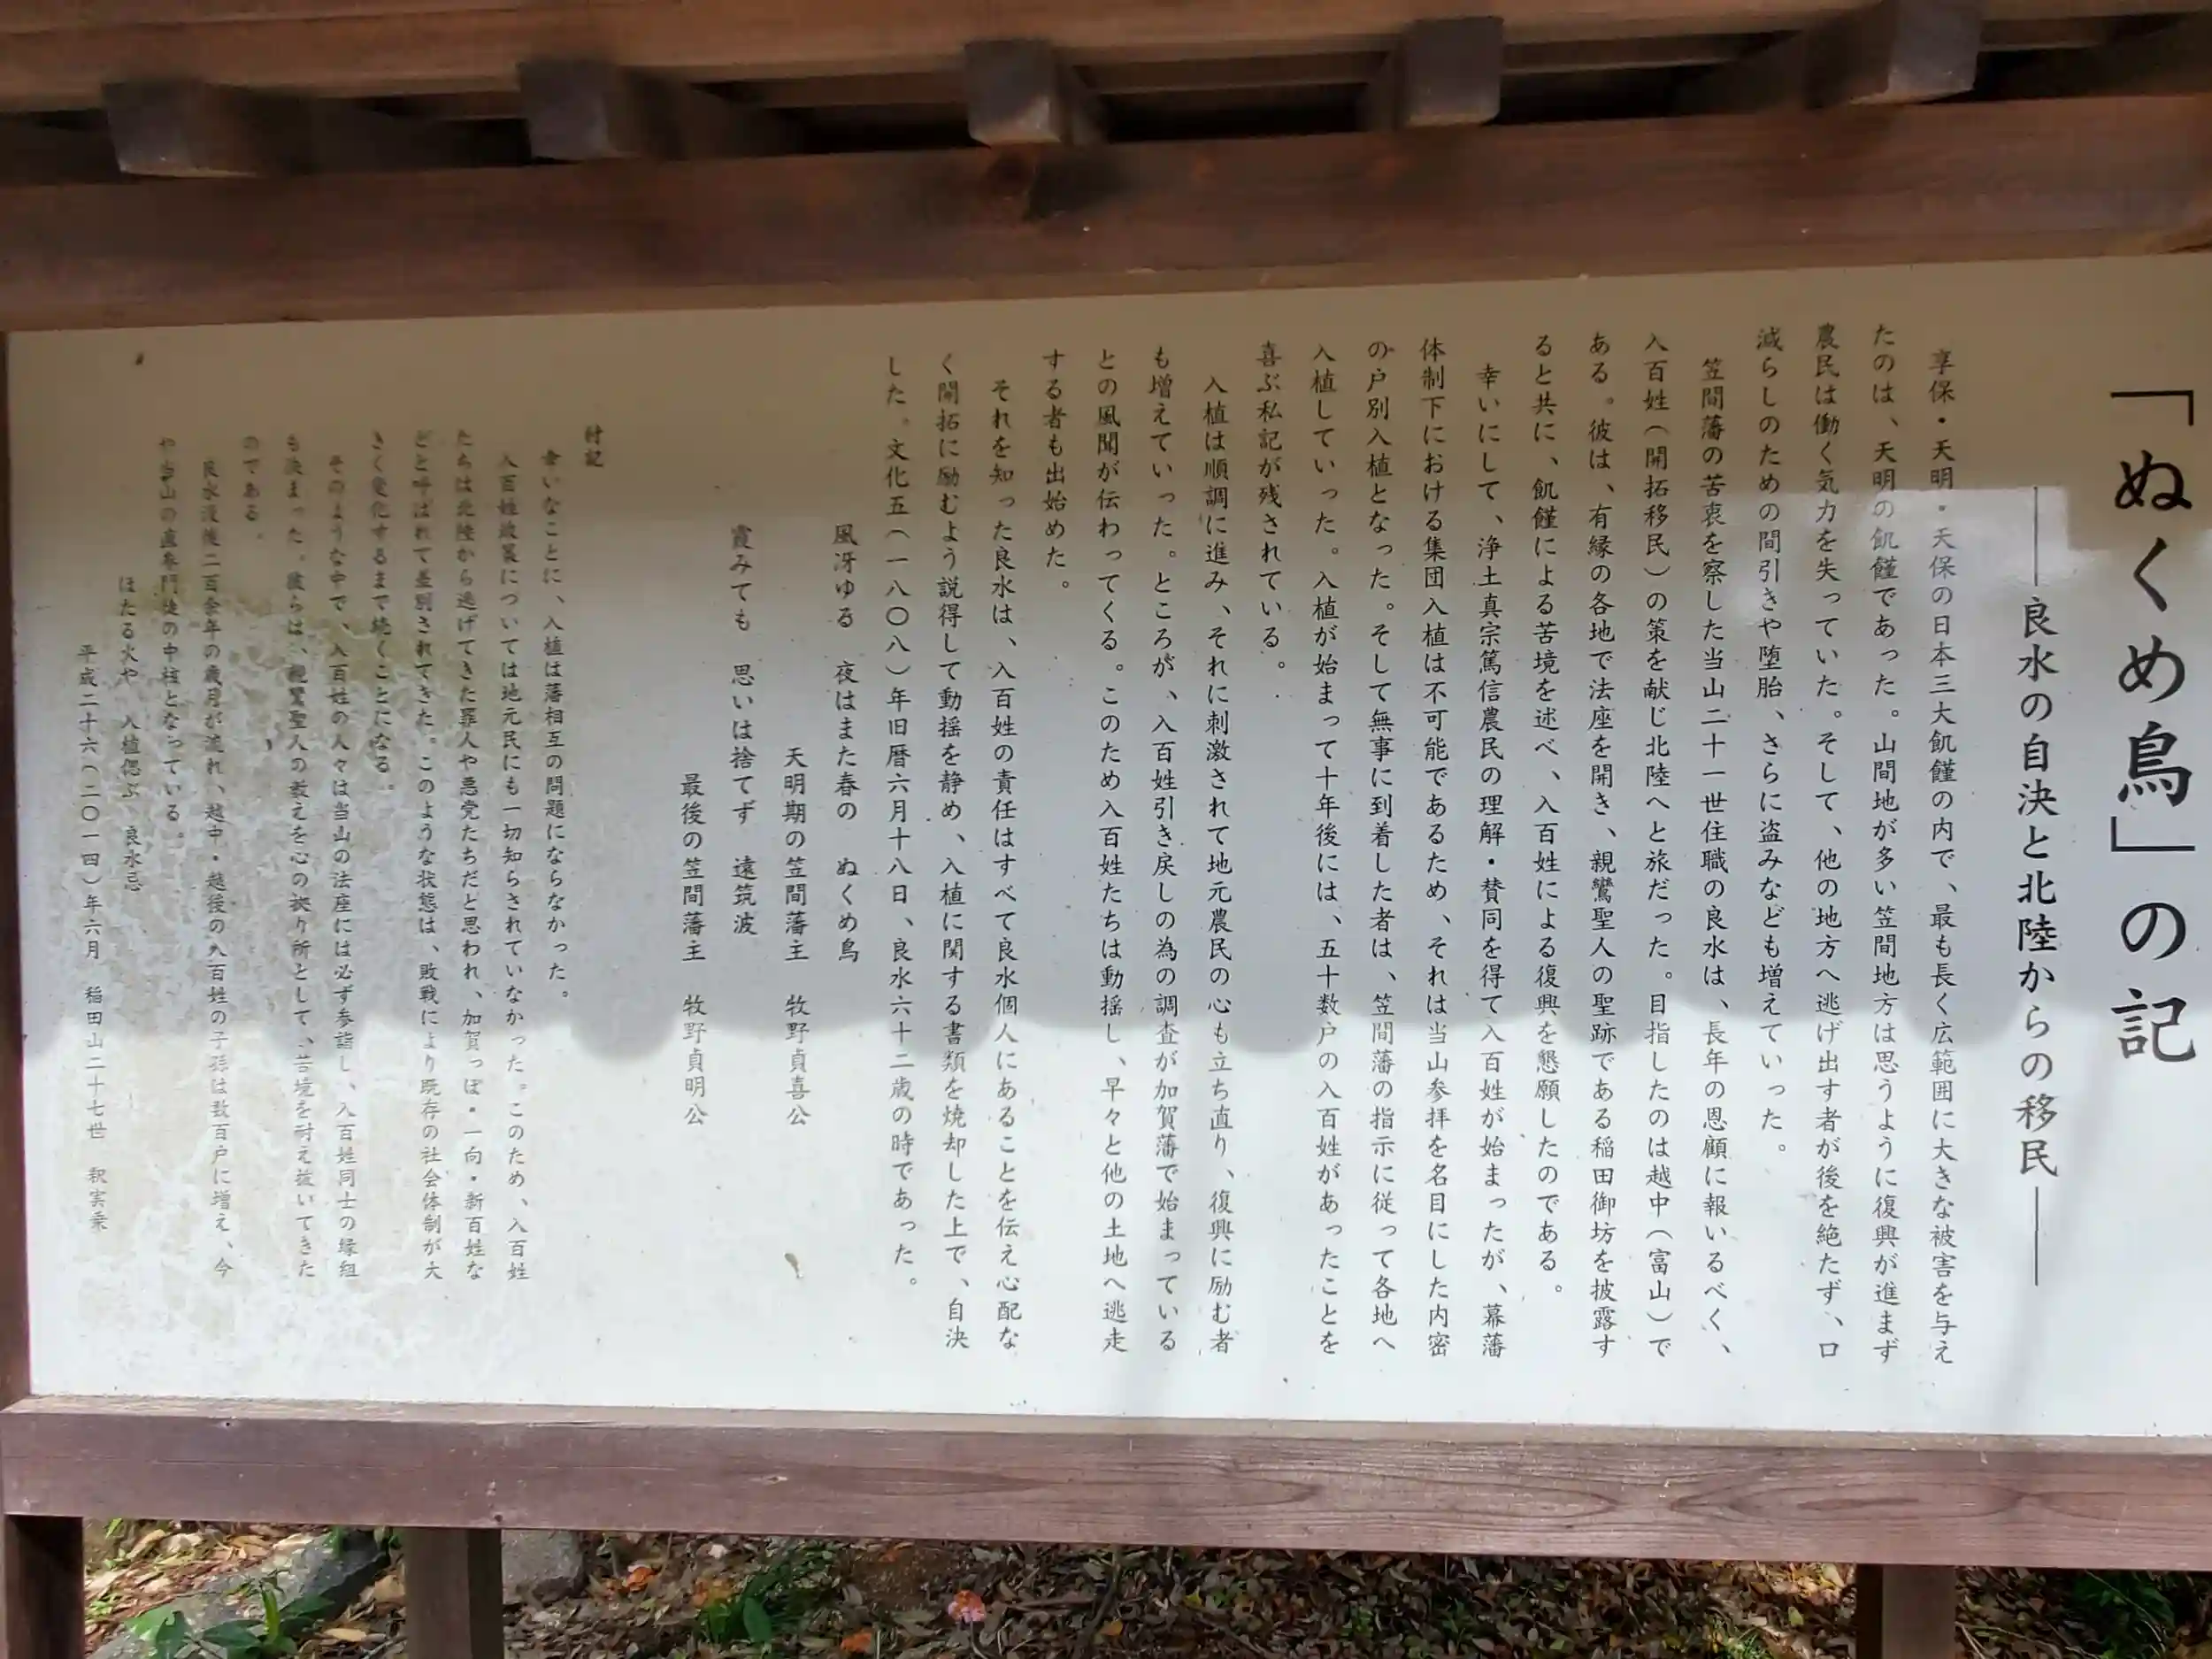 「ぬくめ鳥」の記
――良水の自決と北陸からの移民――
享保・天明・天保の日本三大飢饉の内で、最も長く広範囲に大きな被害を与え
たのは、天明の飢饉であった。山間地が多い笠間地方は思うように復興が進まず
農民は働く気力を失っていた。そして、他の地方へ逃げ出す者が後を絶たず、口
減らしのための間引きや堕胎、さらに盗みなども増えていった。
笠間藩の苦衷を察した当山二十一世住職の良水は、長年の恩顧に報いるべく、
入百姓(開拓移民)の策を献じ北陸へと旅だった。目指したのは越中(富山)で
ある。彼は、有縁の各地で法座を開き、親鸞聖人の聖跡である稲田御坊を披露す
ると共に、飢饉による苦境を述べ、入百姓による復興を懇願したのである。
幸いにして、浄土真宗篤信農民の理解・賛同を得て入百姓が始まったが、幕藩
体制下における集団入植は不可能であるため、それは当山参拝を名目にした内密
の戸別入植となった。そして無事に到着した者は、笠間藩の指示に従って各地へ
入植していった。入植が始まって十年後には、五十数戸の入百姓があったことを
喜ぶ私記が残されている。
入植は順調に進み、それに刺激されて地元農民の心も立ち直り、復興に励む者
も増えていった。ところが、入百姓引き戻しの為の調査が加賀藩で始まっている
との風聞が伝わってくる。このため入百姓たちは動揺し、早々と他の土地へ逃走
する者も出始めた。
それを知った良水は、入百姓の責任はすべて良水個人にあることを伝え心配な
く開拓に励むよう説得して動揺を静め、入植に関する書類を焼却した上で、自決
した。文化五(一八〇八)年旧暦六月十八日、良水六十二歳の時であった。
風冴ゆる 夜はまた春の ぬくめ鳥
天明期の笠間藩主 牧野貞喜公
霞みても 思いは捨てず 遠筑波
最後の笠間藩主 牧野貞明公
付記
幸いなことに、入植は藩相互の問題にならなかった。
入百姓政策については地元民にも一切知らされていなかった。このため、入百姓
たちは北陸から逃げてきた罪人や悪党たちだと思われ、加賀っぽ・一向・新百姓な
どと呼ばれて差別されてきた。このような状態は、敗戦により既存の社会体制が大
きく変化するまで続くことになる。
そのような中で、入百姓の人々は当山の法座には必ず参詣し、入百姓同士の縁組
も決まった。彼らは、親鸞聖人の教えを心の拠り所として、苦境を耐え抜いてきた
のである。
良水没後二百余年の歳月が流れ、越中・越後の入百姓の子孫は数百戸に増え、今
や当山の直参門徒の中核となっている。
ほたる火や 入植偲ぶ 良水忌
平成二十六(二〇一四)年六月 稲田山二十七世 釈実乗